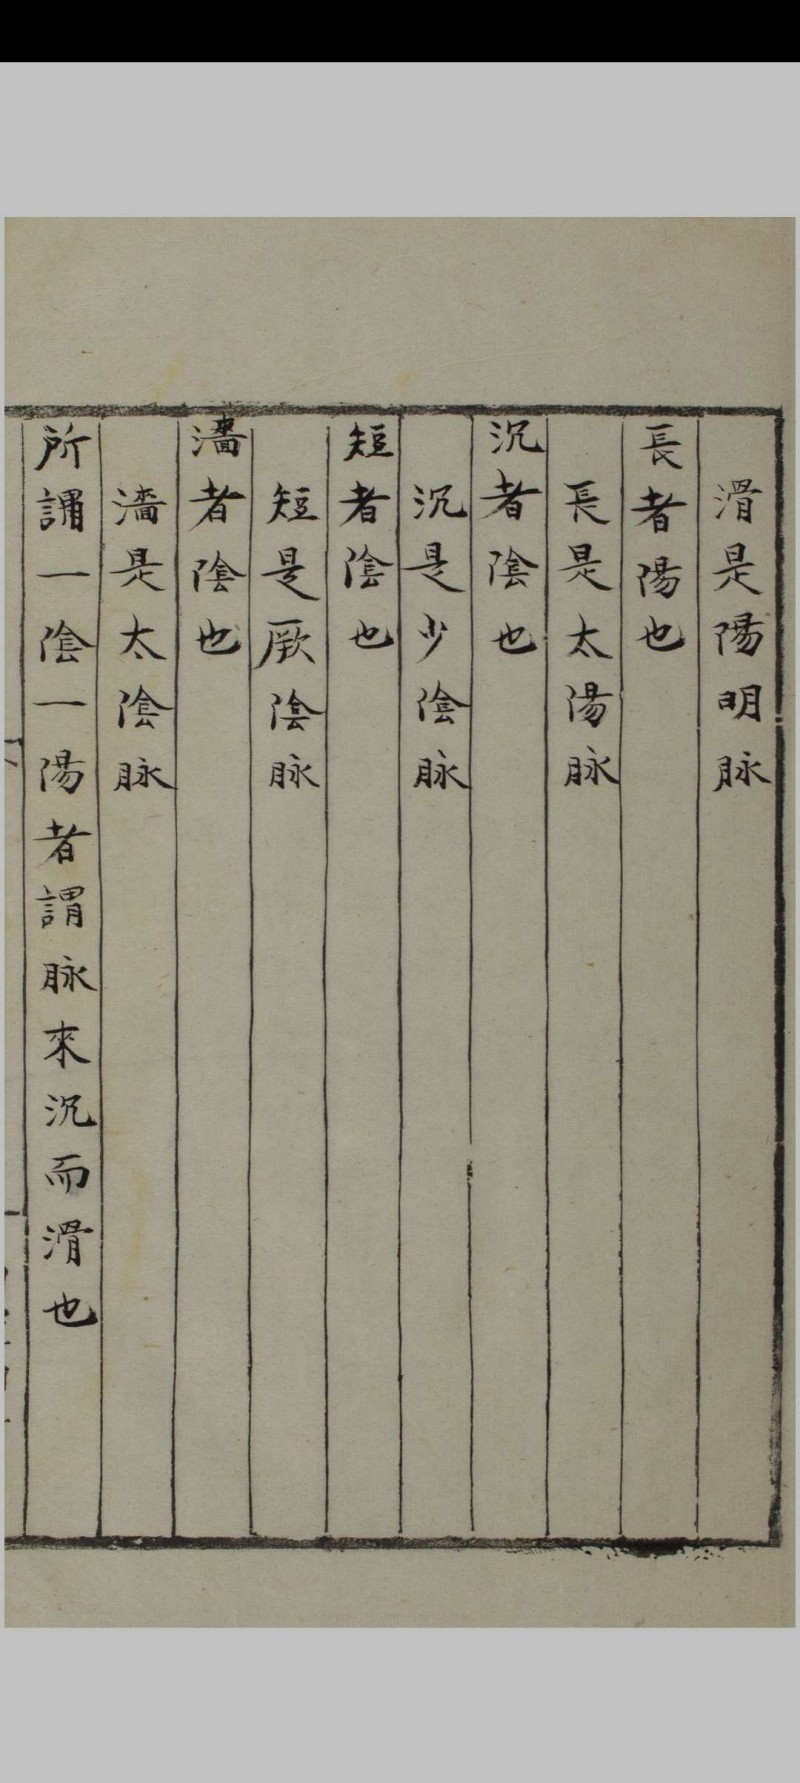 滑是陽明脉
長者陽也
長是太陽脉
沉者陰也
沉是少陰脉
短者陰也
短是厥陰脉
濇者陰也
濇是太陰脉
所謂一陰一陽者謂脉來沉而滑也